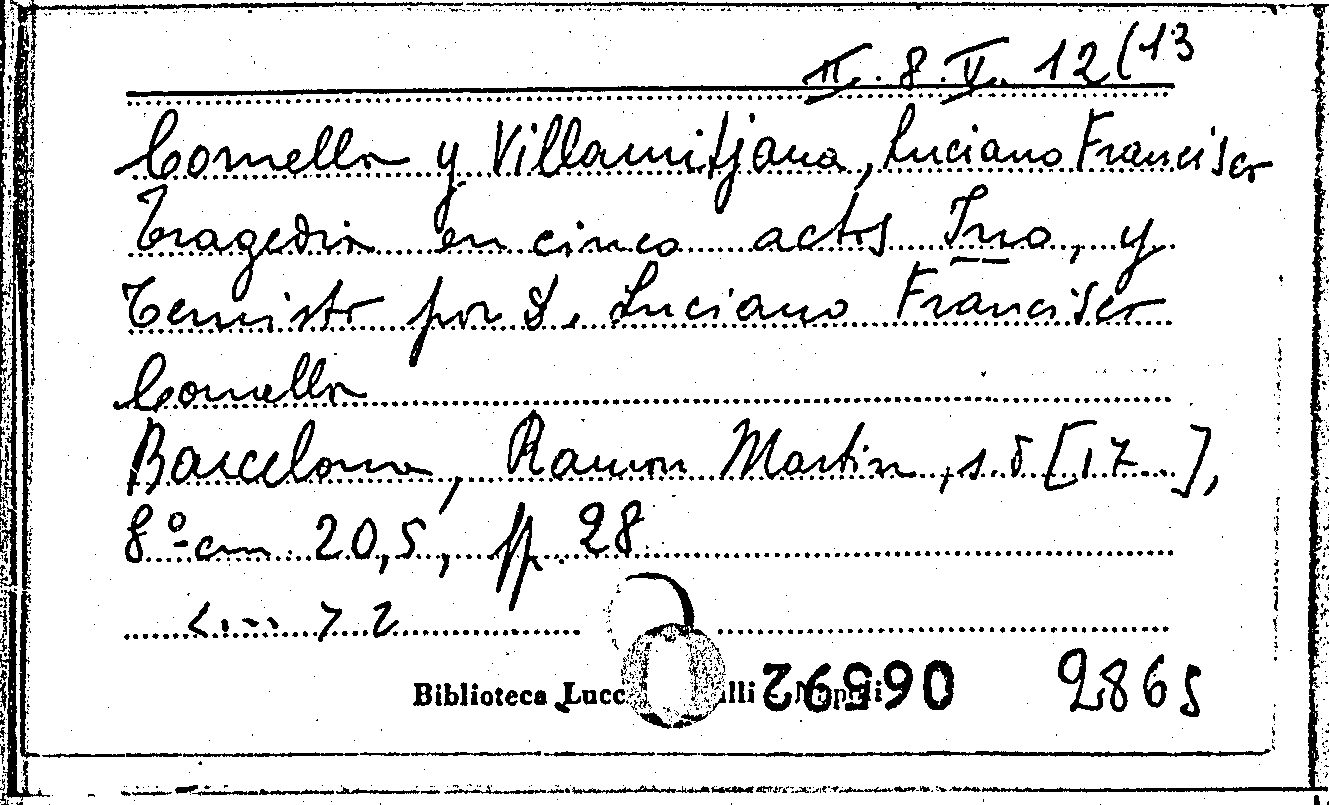 II. 8. V. 12 (13
Comella y Villamitjana, Luciano Francisco
Tragedia en cinco actos Ino, y
Temisto por D. Luciano Francisco
Comella
Barcelona, Ramon Martin, s. d [17..],
8º cm 20,5, pp. 28
<...> 2
Biblioteca Lucc lli - Napoli 06592 2865